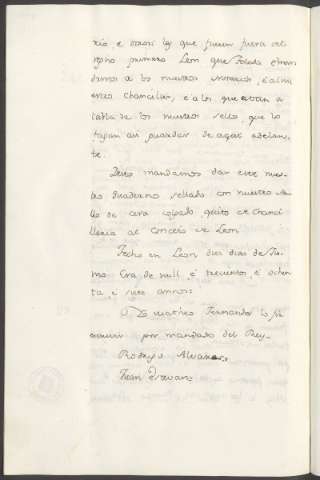 rio, e otrosi los que fueren fuera del
regno primero Leon que Toledo e man
damos a los nuestros notarios, e al nu
estro Chanciller, e a los que estan a
tabla de los nuestros sellos, que lo
fagan asi guardar de aqui adelan-
te.
Desto mandamos dar este nues-
tro quaderno sellado con nuestro se-
llo de cera colgado quito de chanci
lleria al Concejo de Leon
Fecho en Leon dies dias de Ju-
nio Era de mill, é trecientos é ochen
ta e siete annos:
Yo Matheo Fernandez lo fis
escrevir por mandado del Rey-
Rodrigo Alvarez,
Juan Estevan,,